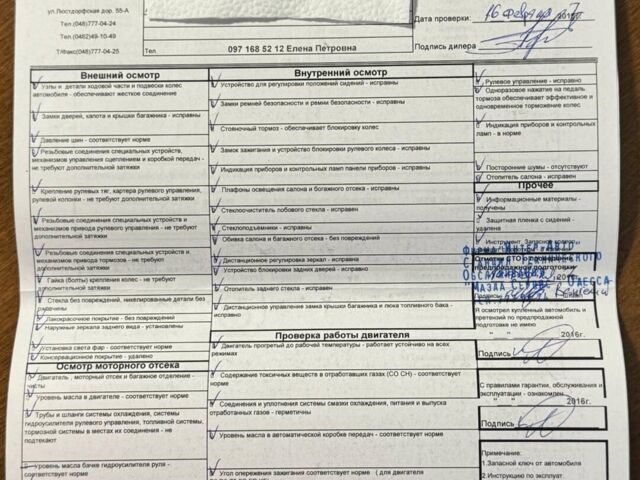 ул.Люстдорфская дор. 55-А
Тел.(048)777-04-24
Тел.(0482)49-10-49
Т/Факс(048)777-04-25
Тел
097 168 52 12 Елена Петровна
Дата проверки:
16 февраля 2016г
Подпись дилера
Внешний осмотр
Узлы и детали ходовой части и подвески колес
автомобиля - обеспечивают жесткое соединение
Замки дверей, капота и крышки багажника - исправны
Давление шин - соответствует норме
Резьбовые соединения специальных устройств,
механизмов управления сцеплением и коробкой передач -
не требуют дополнительной затяжки
Крепление рулевых тяг, картера рулевого управления,
рулевой колонки - не требуют дополнительной затяжки
Резьбовые соединения специальных устройств и
механизмов привода управления - не требуют
дополнительной затяжки
Резьбовые соединения специальных устройств и
механизмов привода тормозов - не требуют
дополнительной затяжки
Гайка (болты) крепления колес - не требуют
дополнительной затяжки
Стекла без повреждений, никелированные детали без
Лакокрасочное покрытие - без повреждений
Наружные зеркала заднего вида - установлены
Установка света фар - соответствует норме
Консервационное покрытие - удалено
Осмотр моторного отсека
Двигатель , моторный отсек и багажное отделение -
чисты
Уровень масла в двигателе - соответствует норме
Трубы и шланги системы охлаждения, системы
гидроусилителя рулевого управления, топливной системы,
тормозной системы в местах их соединения - не
подтекают
Уровень масла бачке гидроусилителя руля -
соответствует норме
Внутренний осмотр
Устройство для регулировки положений сидений - исправны
Замки ремней безопасности и ремни безопасности - исправны
Стояночный тормоз - обеспечивает блокировку колес
Замок зажигания и устройство блокировки рулевого колеса - исправны
Индикация приборов и контрольных ламп панели приборов - исправны
Плафоны освещения салона и багажного отсека - исправны
Стеклоочиститель лобового стекла - исправны
Стеклоподъемники - исправны
Обивка салона и багажного отсека - без повреждений
Дистанционная регулировка зеркал - исправны
Устройство блокировки задних дверей - исправны
Отопитель заднего стекла - исправен
Дистанционное управление замка крышки багажника и люка топливного бака -
исправны
Проверка работы двигателя
Двигатель прогретый до рабочей температуры - работает устойчиво на всех
режимах
Содержание токсических веществ в отработавших газах (СО СН) - соответствует
норме
Соединения и уплотнения системы смазки охлаждения, питания и выпуска
отработанных газов - герметичны
Уровень масла в автоматической коробке передач - соответствует норме
Угол опережения зажигания соответствует норме ( для двигателя
Рулевое управление - исправно
Одноразовое нажатие на педаль
тормоза обеспечивает эффективное и
одновременное торможение колес
Индикация приборов и контрольных
ламп - в норме
Посторонние шумы - отсутствуют
Отопитель салона - исправен
Прочее
Информационные материалы -
получены
Защитная пленка с сидений -
удалена
Инструмент, Запасное колесо,
Фирма "Интер-Авто"
Отметки СТО о проведении
предпродажной подготовки
"МАЗДА СЕРВИС" ОДЕССА
Подпись
Я осмотрел купленный автомобиль и
претензий по предпродажной
подготовке не имею
2016г.
Подпись
С правилами гарантии, обслуживания и
эксплуатации - ознакомлен
2016г.
Подпись
Примечание:
1.Запасной ключ от автомобиля
2.Инструкцию по эксплуат.